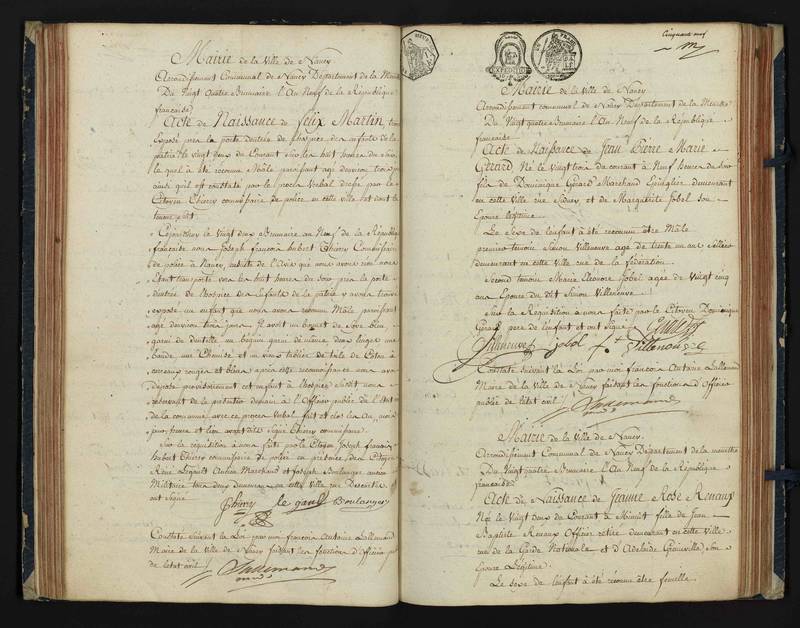 Mairie de la Ville de Nancy
Arrondissement Communal de Nancy Département de la Meurthe
Du Vingt Quatre Brumaire l'An Neuf de la République
française
Acte de Naissance de Felix Martin, trouvé
Exposé près la porte d'entrée de l'hospice des enfants de la
patrie le vingt deux du Courant sur les huit heures du soir,
lequel a été reconnu Mâle, paraissant agé d'environ trois jours
ainsi qu'il est constaté par le procès Verbal dressé par le
Citoyen Thierry commissaire de police en cette ville dont la
teneur suit
Cejourd'hui le Vingt deux Brumaire an Neuf de la République
française nous Joseph françois hubert Thierry Commissaire
de police à Nancy, ensuite de l'Avis que nous avons reçu nous
étant transporté vers les huit heures du soir près la porte
d'entrée de l'hospice des Enfants de la patrie y avons trouvé
exposé un enfant que nous avons reconnu Mâle paraissant
agé d'environ trois jours Il avoit un bonnet de Soye bleu
garni de dentelle un beguin garni de même deux langes une
bande, une Chemise et un vieux tablier de toile de Coton à
carreaux rouges et bleus après cette reconnaissance nous avons
déposé provisoirement cet enfant à l'hospice susdit nous
reservant de le présenter demain à l'Officier public de l'état
de la commune avec ce procès verbal fait et clos les An, mois
jour, heure et lieu avant dits Signé Thierry commissaire.
Sur la réquisition à nous faite par le Citoyen Joseph françois
hubert Thierry commissaire de police en présence des Citoyens
René Legault Ancien Marchand et Joseph Boulanger ancien
Militaire tous deux demeurant en cette ville rue
ont Signé
Thierry le gault Boulanger
Constaté suivant la Loi par moi françois Antoine Lallemand
Maire de la Ville de Nancy faisant les fonctions d'Officier public
de l'etat civil
Lallemand
Cinquante neuf
Mairie de la Ville de Nancy
Arrondissement communal de Nancy Département de la Meurthe
Du Vingt quatre Brumaire l'An Neuf de la République
française
Acte de Naissance de Jean Pierre Marie
Gérard, Né le Vingt trois du courant à Neuf heures du soir
fils de Dominique Gérard Marchand Epinglier demeurant
en cette Ville rue Sidney et de Marguerite Gobel son
Epouse légitime.
Le Sexe de l'enfant a été reconnu être Mâle
premier temoin Simon Villeneuve agé de trente un ans Sellier
demeurant en cette Ville rue de la fédération.
Second témoin Marie Eléonore Gobel agée de Vingt cinq
ans Epouse du dit Simon Villeneuve
Sur la Réquisition à nous faite par le Citoyen Dominique
Gérard père de l'enfant et ont Signé
Villeneuve Gobel
Constaté suivant la Loi par moi françois Antoine Lallemand
Maire de la Ville de Nancy faisant les fonctions d'Officier
public de l'etat civil
Lallemand
Mairie de la Ville de Nancy.
Arrondissement Communal de Nancy Département de la meurthe
Du Vingt quatre Brumaire l'An Neuf de la République
française
Acte de Naissance de Jeanne Rose Renaux
Né le Vingt deux du Courant à Minuit fille de Jean
Baptiste Renaux Officier retiré demeurant en cette Ville
rue de la Garde Nationale et d'Adelaïde son
Epouse Légitime.
Le Sexe de l'enfant à été reconnu être femelle.